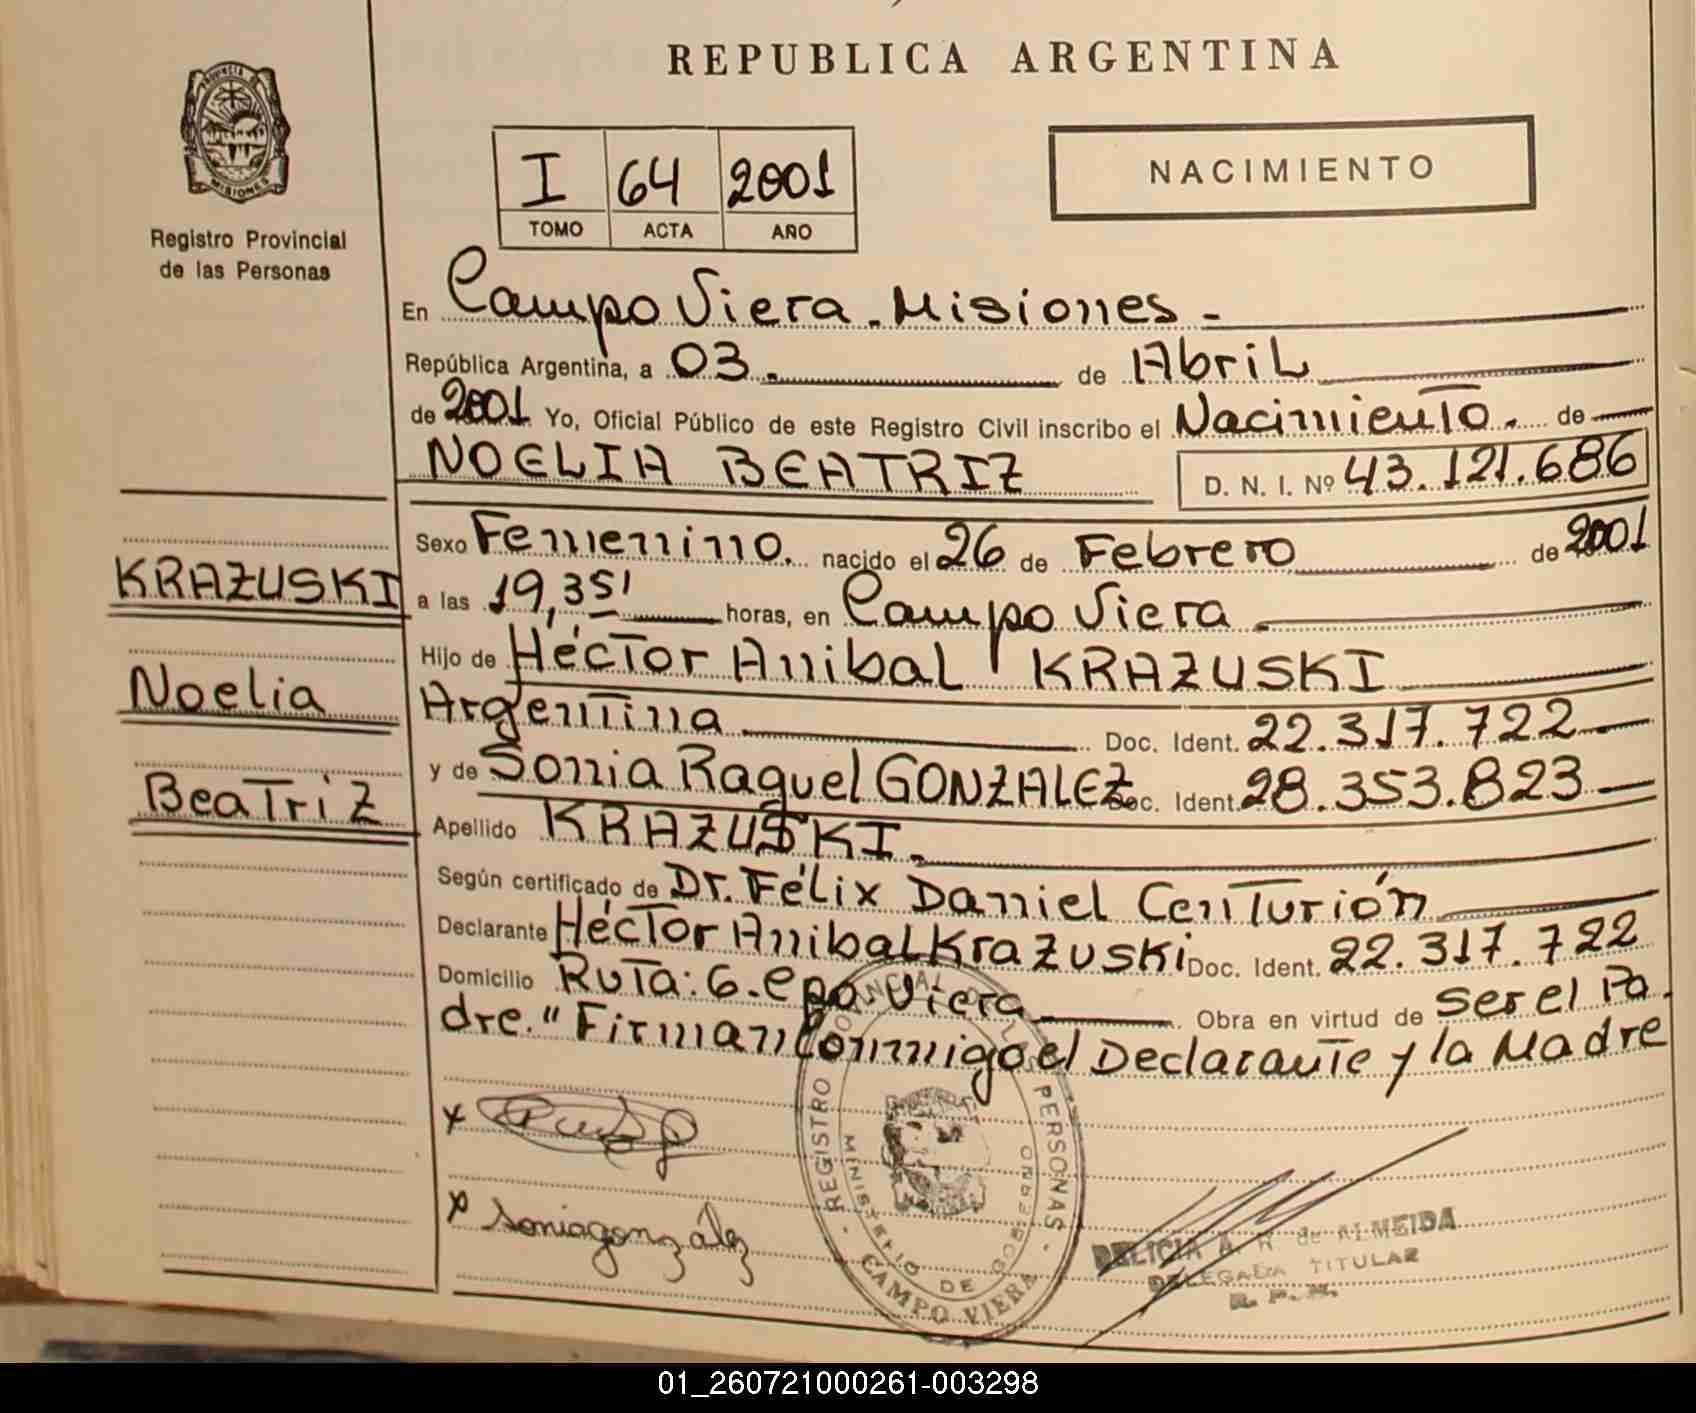 REPUBLICA ARGENTINA
PROVINCIA DE MISIONES
Registro Provincial
de las Personas
I 64 2001
TOMO ACTA AÑO
NACIMIENTO
En Campo Viera - Misiones -
República Argentina, a 03. de Abril
de 2001 Yo, Oficial Público de este Registro Civil inscribo el Nacimiento. de
NOELIA BEATRIZ D. N. I. Nº 43.121.686
Sexo Femenino. nacido el 26 de Febrero de 2001
a las 19,35' horas, en Campo Viera
Hijo de Héctor Anibal KRAZUSKI
Argentina Doc. Ident. 22.317.722
y de Sonia Raquel GONZALEZ Doc. Ident. 28.353.823
Apellido KRAZUSKI.
Según certificado de Dr. Félix Daniel Centurión
Declarante Héctor Anibal Krazuski Doc. Ident. 22.317.722
Domicilio Ruta: 6. Cpo. Viera Obra en virtud de ser el Pa-
dre." Firman Conmigo el Declarante y la Madre
KRAZUSKI
Noelia
Beatriz
x
x Sonia gonzález
REGISTRO PROVINCIAL DE LAS PERSONAS
MINISTERIO DE GOBIERNO
CAMPO VIERA
DELICIA A. R de ALMEIDA
DELEGADA TITULAR
R. P. M.
01_260721000261-003298